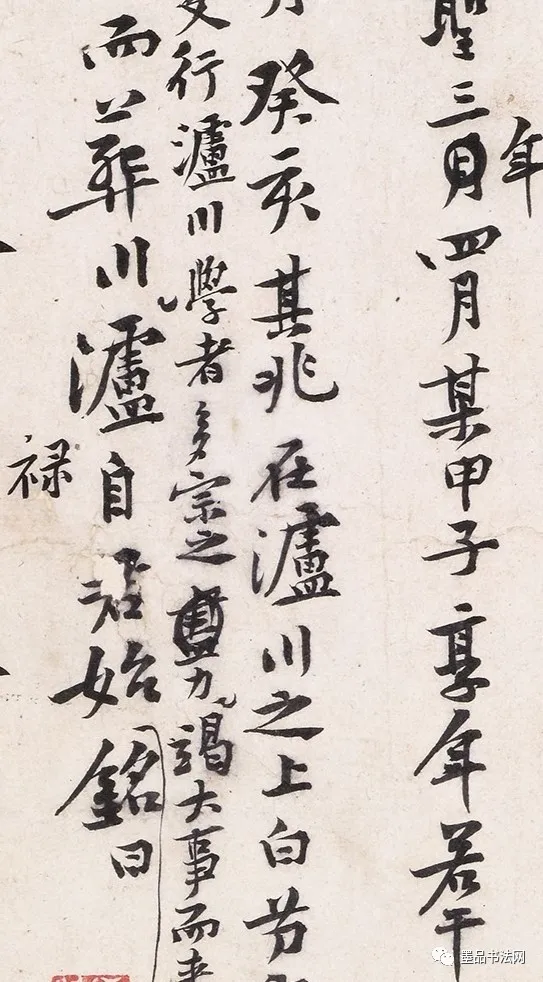 年
聖三月四月某甲子享年若干
癸亥其兆在瀘川之上白艻
行瀘川學者多宗之力竭大事而
而以葬川瀘自始銘曰
禄
墨品书法网